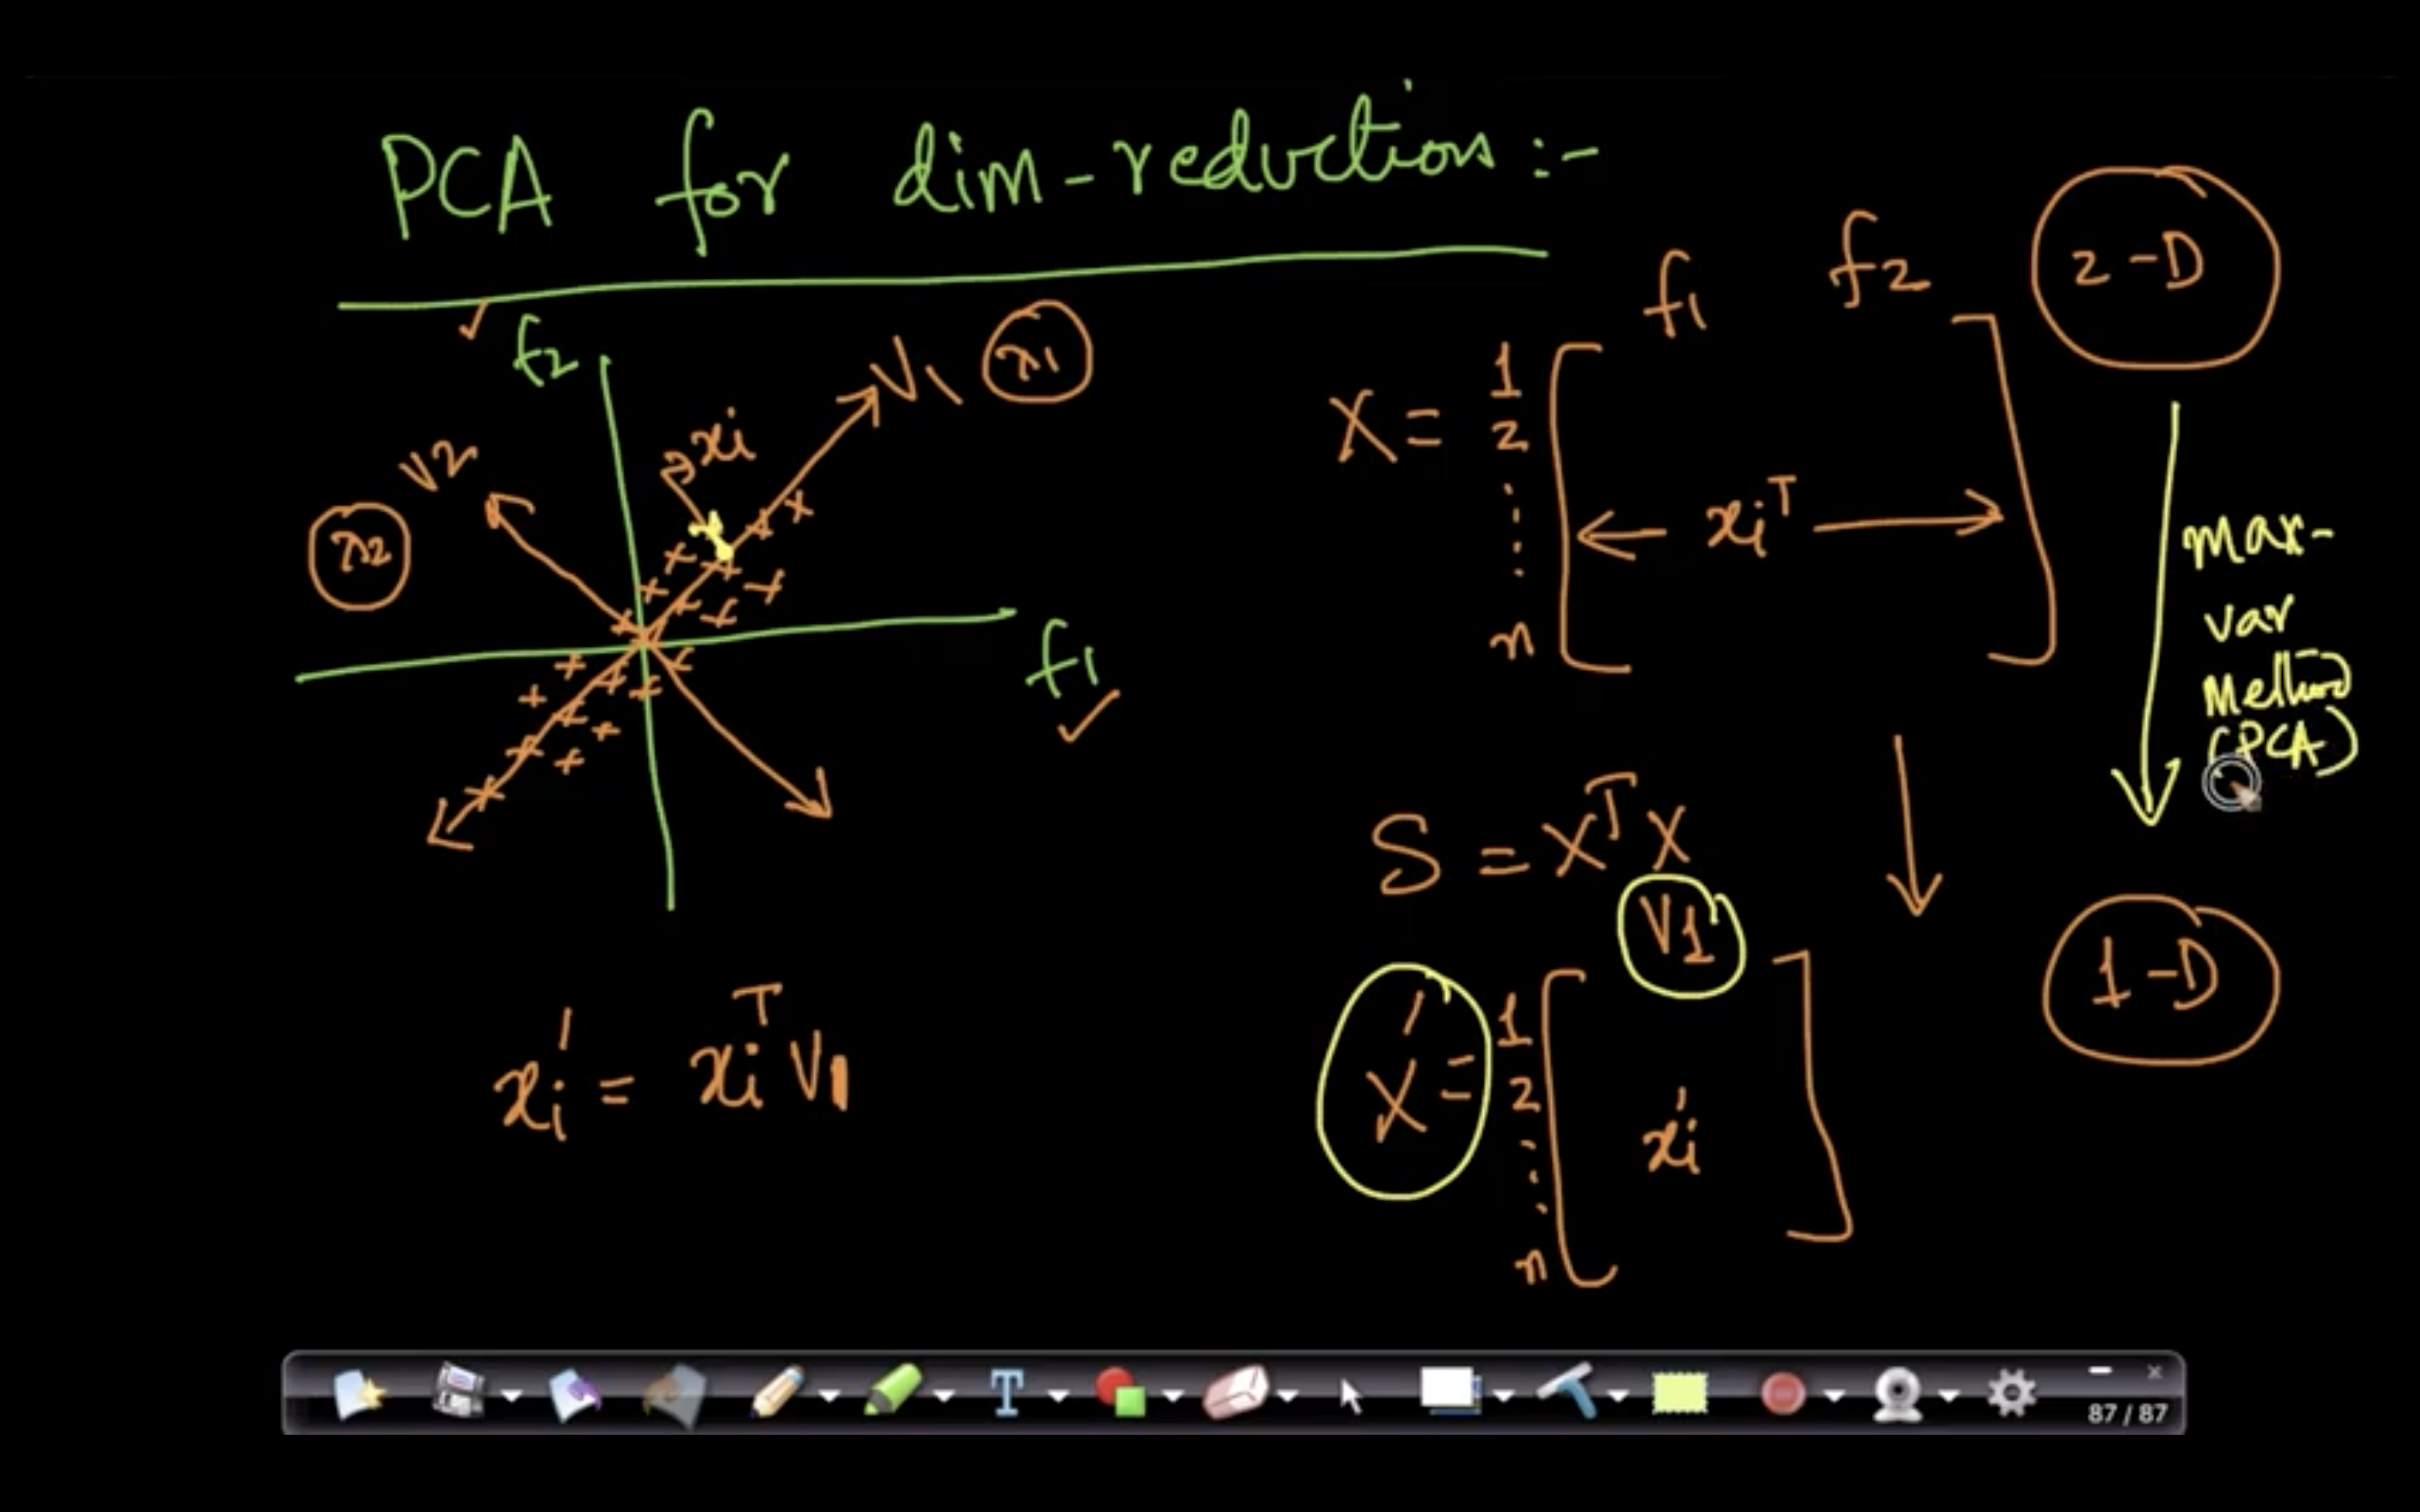 PCA for dim-reduction :-
f2
V1 λ1
xi
V2
λ2
f1
xi' = xiᵀ V1
f1 f2
2-D
X =
1
2
n
xiᵀ
max-
var
Method
(PCA)
S = XᵀX
V1
1-D
X' =
1
2
n
xi'
87 / 87